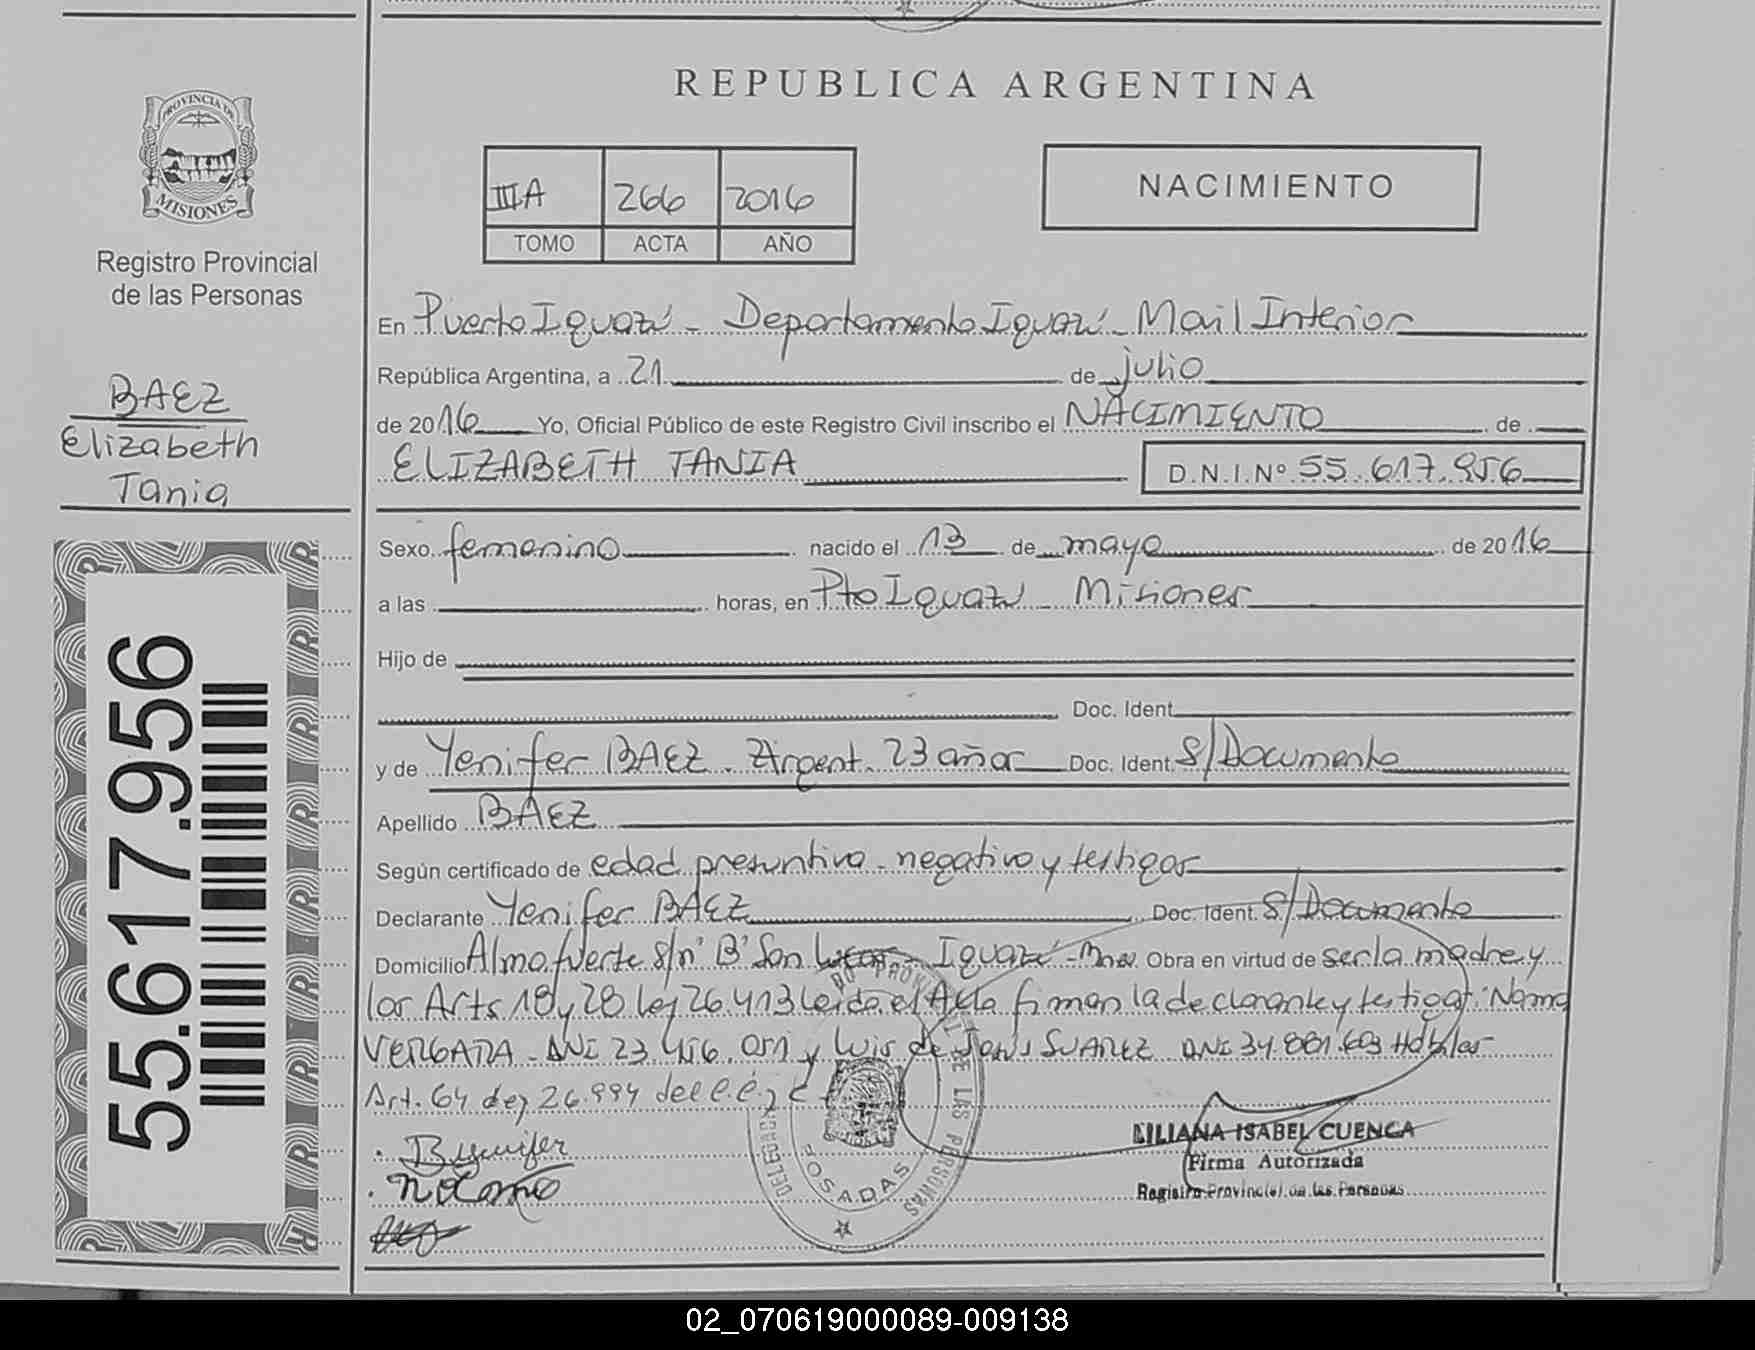 REPUBLICA ARGENTINA
PROVINCIA DE
MISIONES
Registro Provincial
de las Personas
BAEZ
Elizabeth
Tania
55.617.956
IIIA 266 2016
TOMO ACTA AÑO
NACIMIENTO
En Puerto Iguazú - Departamento Iguazú - Mail Interior
República Argentina, a 21 de julio
de 2016 Yo, Oficial Público de este Registro Civil inscribo el NACIMIENTO de
ELIZABETH TANIA D.N.I.Nº 55.617.956
Sexo femenino nacido el 13 de mayo de 2016
a las horas, en Pto Iguazu Misiones
Hijo de
Doc. Ident.
y de Yenifer BAEZ. Argent. 23 años Doc. Ident. S/Documento
Apellido BAEZ
Según certificado de edad presuntiva - negativo y testigos
Declarante Yenifer BAEZ Doc. Ident. S/Documento
Domicilio Almafuerte s/nº Bº San Lucas - Iguazú - Mnes. Obra en virtud de ser la madre y
los Arts 18 y 28 Ley 26.413 Leida el Acta firman la declarante y testigos: Norma
VERGARA - DNI 23.456.051 y Luis de Jesús SUAREZ DNI 34.881.603 Hábiles
Art. 64 Ley 26.994 del C.C. y C.
LILIANA ISABEL CUENCA
Firma Autorizada
Registro Provincial de las Personas
DELEGACION
DE LAS PERSONAS
POSADAS
02_070619000089-009138